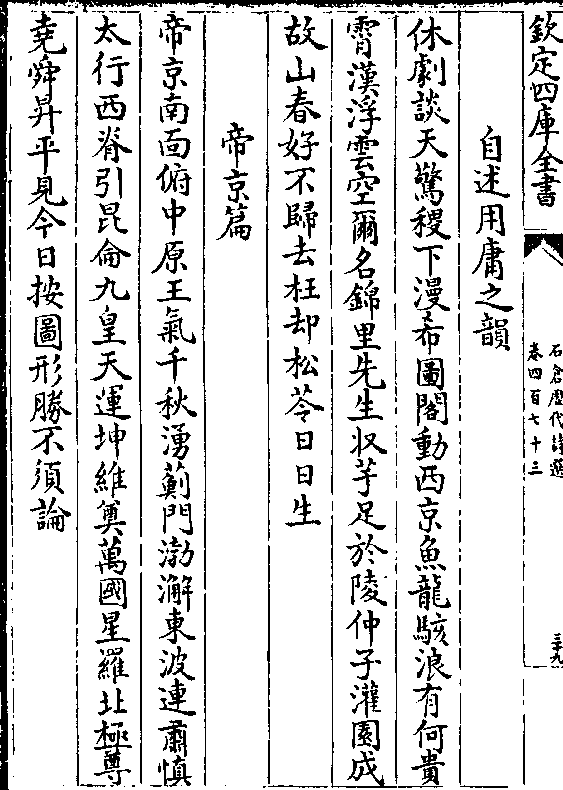 欽定四庫全書
石倉歷代詩選
卷四百七十三
三十九
自述用庸之韻
休劇談天驚稷下漫希圖閣動西京魚龍駭浪有何貴
霄漢浮雲空爾名錦里先生收芋足於陵仲子灌園成
故山春好不歸去枉却松苓日日生
帝京篇
帝京南面俯中原王氣千秋湧薊門渤澥東波連肅慎
太行西脊引昆侖九皇天運坤維奠萬國星羅北極尊
堯舜昇平見今日按圖形勝不須論